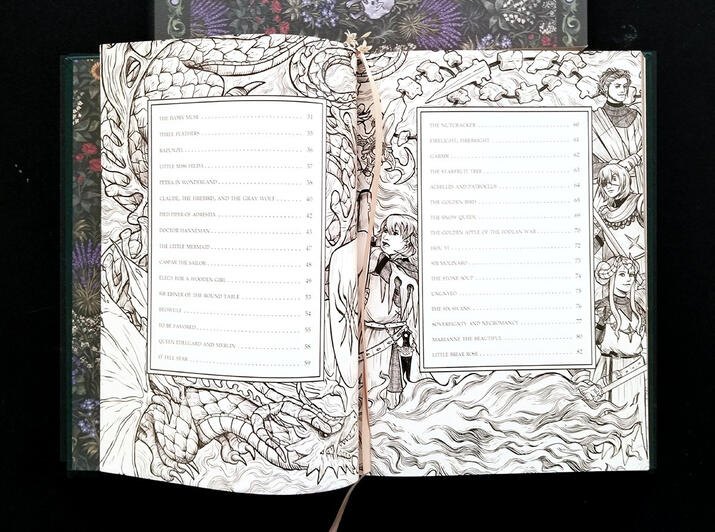 THE IVORY MUSE 31
THREE FEATHERS 35
RAPUNZEL 36
LITTLE MISS HILDA 37
PETRA IN WONDERLAND 38
CLAUDE, THE FIREBIRD, AND THE GRAY WOLF 40
PIED PIPER OF ADRESTIA 42
DOCTOR HANNEMAN 43
THE LITTLE MERMAID 47
CASPAR THE SAILOR 48
ELEGY FOR A WOODEN GIRL 49
SIR EBNER OF THE ROUND TABLE 53
BEOWULF 54
TO BE FAVORED 55
QUEEN EDELGARD AND MERLIN 58
O' FELL STAR 59
THE NUTCRACKER 60
FIRELIGHT, FIREBRIGHT 61
62
THE STARFRUIT TREE 63
ACHILLES AND PATROCLUS 64
THE GOLDEN BIRD 65
THE SNOW QUEEN 69
THE GOLDEN APPLE OF THE FODLAN WAR 70
HOU YI 72
SIR MOLINARO 73
THE STONE SOUP 74
UNGNYEO 75
THE SIX SWANS 76
SOVEREIGNTY AND NECROMANCY 77
MARIANNE THE BEAUTIFUL 80
LITTLE BRIAR ROSE 82